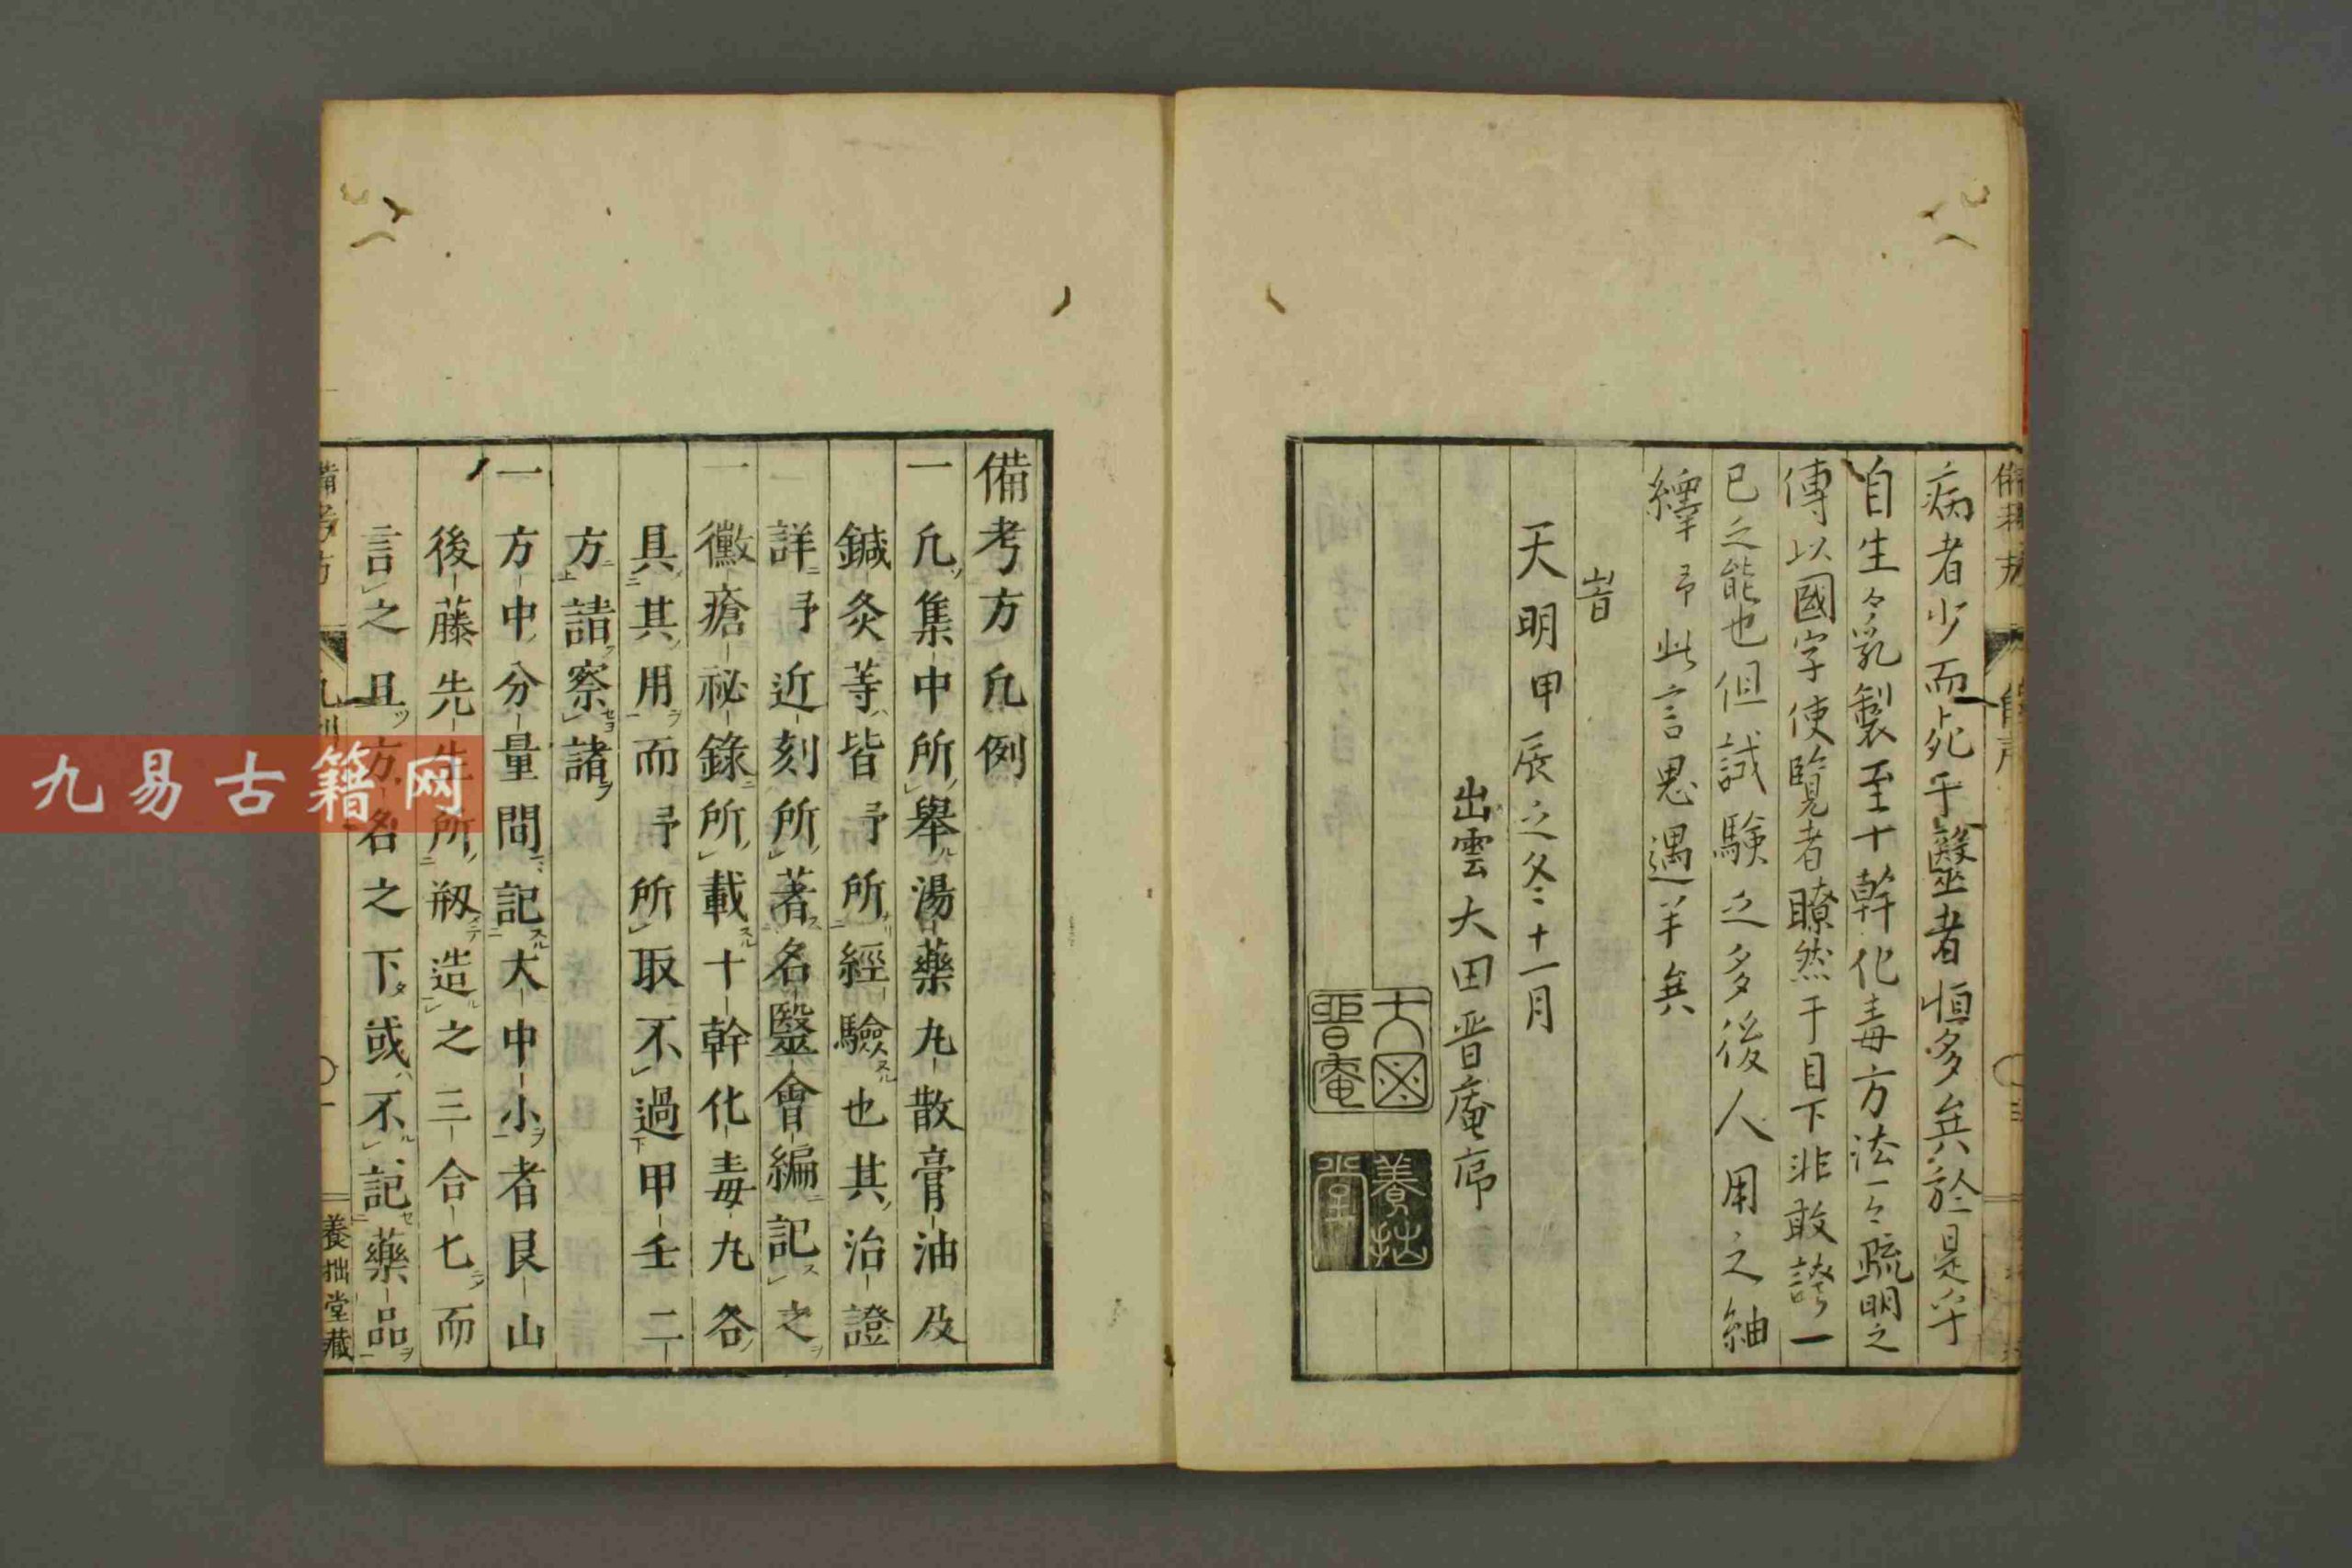 病者少而死于醫者恒多矣於是乎
自生々乳製至十幹化毒方法一々疏明之
傳以國字使覧者瞭然于目下非敢誇一
已之能也但試驗之多後人用之紬
繹予此言思過半矣
旹
天明甲辰之冬十一月
出雲大田晋庵序
晋庵
養拙堂
備考方凢例
一凢集中所舉湯藥丸散膏油及
鍼灸等皆予所經驗也其治證
詳予近刻所著名醫會編記之
一黴瘡祕錄所載十幹化毒丸各
具其用而予所取不過甲壬二
方請察諸
一方中分量間記大中小者艮山
後藤先生所剏造之三合七而
言之且方名之下或不記藥品
備考方
養拙堂藏
九易古籍网